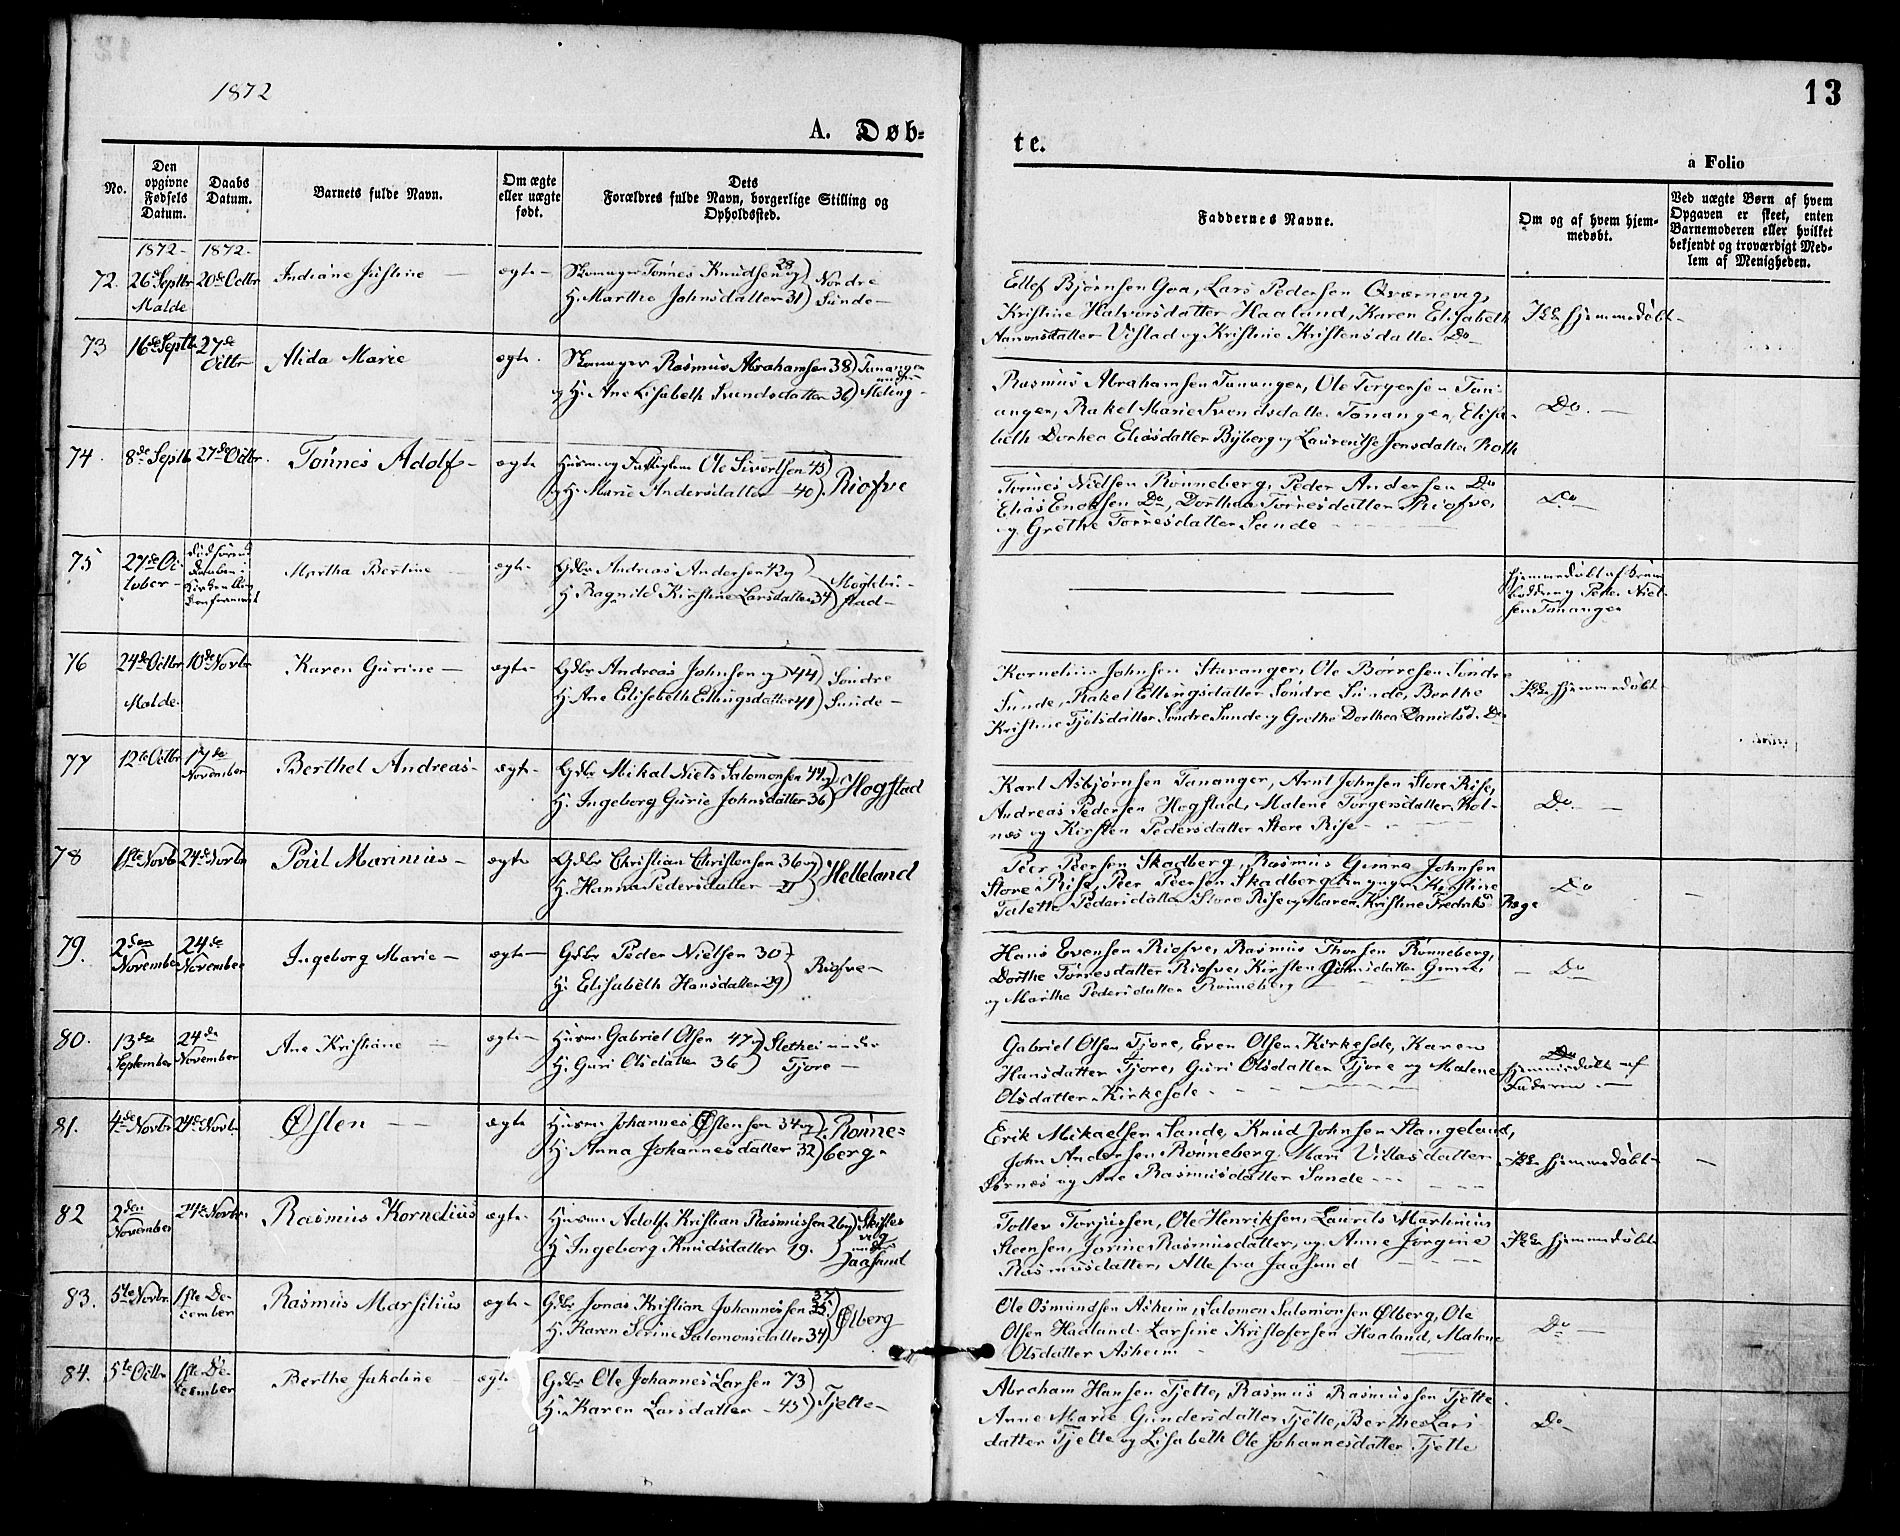 1872
13
A. Døb=
te.
a Folio
No.
Den opgivne Fødsels Datum.
Daabs Datum.
Barnets fulde Navn.
Om ægte eller uægte født.
Dets Forældres fulde Navn, borgerlige Stilling og Opholdssted.
Faddernes Navne.
Om og af hvem hjemmedøbt.
Ved uægte Børn af hvem Opgaven er skeet, enten Barnemoderen eller hvilket bekjendt og troværdigt Medlem af Menigheden.
1872- 1872-
72. 26de Septbr Malde 20de Octbr Indiane Justine — ægte - Skomager Tønnes Knudsen 28 og
H. Marthe Johnsdatter 31) Nordre Sunde -
Ellef Bjørnsen Goa, Lars Pedersen Qværnevig,
Kristine Halvorsdatter Haaland, Karen Elisabeth
Aanonsdatter Vistad og Kristine Kristensdatter Do
Ikke hjemmedøbt -
73 16de Septbr 27de Octbr Alida Marie ægte. Skomager Rasmus Abrahamsen 38)
og H. Ane Lisabeth Svendsdatter 36) Tananger under Meling -
Rasmus Abrahamsen Tananger, Ole Torgersen Tan-
anger, Rakel Marie Svendsdatter Tananger, Elisa-
beth Dorhea Eliasdatter Byberg og Laurentse Jonsdatter Roth
Do. —
74. 8de Septb 27de Octbr. Tönnes Adolf - ægte Husm. og Ole Sivertsen 45)
og H. Marie Andersdatter - 40). Risfve
Tønnes Nielsen Rønneberg, Peder Andersen Do
Elias Enoksen Do, Dorthea Tørresdatter Risfve,
og Grethe Tørresdatter Sande
Do —
75 27de Oc-
tober - Martha Bertine — ægte - Gdbr Andreas Andersen 42 og
H. Ragnild Kirstine Larsdatter 34)
stad -
Hjemmedøbt af
Peder Niel-
sen Tananger
76 24de Octbr Malde. 10de Novbr Karen Gurine — ægte - Gdbr Andreas Johnsen og 44)
H. Ane Elisabeth Ellingsdatter 41) Søndre Sunde -
Kornelius Johnsen Stavanger, Ole Børresen Søndre
Sunde, Rakel Ellingsdatter Søndre Sunde, Berthe
Kristine Tjølsdatter Søndre Sunde og Grethe Dorthea Danielsd. Do
Ikke hjemmedøbt -
77 12te Octbr 17de November Berthel Andreas - ægte - Gdbr Mikal Niels Salomonsen 44 og
H. Ingeborg Gurie Johnsdatter 36) Hogstad
Karl Asbjørnsen Tananger, Arnt Johnsen Store Rise,
Andreas Pedersen Hogstad, Malene Torgersdatter Kol-
næs og Kirsten Pedersdatter Store Rise -
Do. —
78 1ste Novb 24de Novbr Poül Marinius - ægte Gdbr Christian Christensen 36 og
H. Hanna Pedersdatter - 21) Helleland
Peer Peersen Skadberg, Rasmus Gimre Johnsen
Store Rise, Peer Peersen Skadberg Kirstine
Talette Pedersdatter Store Rise og Maren Kristine Fredriksd. Røge
Do —
79. 2den November 24de November Ingeborg Marie — ægte — Gdbr Peder Nielsen 30 -
H. Elisabeth Hansdatter 29) Risfve -
Hans Evensen Risfve, Rasmus Thorsen Rønneberg,
Dorthe Tørresdatter Risfve, Kirsten Johnsdatter Gimre,
og Marthe Pedersdatter Rønneberg
— Do
80. 13de September 24de November Ane Kristiane — ægte - Husm. Gabriel Olsen 47 og
H. Guri Olsdatter 36) Slethei under Tjore —
Gabriel Olsen Tjore, Even Olsen Kirkesole, Karen
Hansdatter Tjore, Guri Olsdatter Tjore og Malene
Olsdatter Kirkesole -
Do
Hjemmedøbt af
Faderen. —
81. 4de Novbr 24de Novbr. Østen — ægte Husm. Johannes Østensen 34 og
H. Anna Johannesdatter 32) Rønne=
berg -
Erik Mikaelsen Sande, Knud Johnsen Stangeland,
John Andersen Rønneberg. Mari Villasdatter
Sørnes og Ane Rasmusdatter Sande —
Ikke hjemmedøbt - —
82 2den November 24de Novbr. Rasmus Kornelius ægte - Husm. Adolf Kristian Rasmussen 26 og
H. Ingeborg Knudsdatter 19. Skiftesvig under Jaasund
Tollev Torjussen, Ole Henriksen, Laurits Martinius
Steensen, Jorine Rasmusdatter, og Anne Jørgine
Rasmusdatter, Alle fra Jaasund
Ikke hjemmedøbt
83. 5te Novbr. 1ste De-
cember Rasmus Marsilius ægte - Gdbr Jonas Kristian Johannessen
H. Karen Serine Salomonsdatter 34) Ølberg
Ole Osmundsen Asheim, Salomon Salomonsen Ølberg, Ole
Olsen Haaland. Larsine Kristofersen Haaland, Malene
Olsdatter Asheim —
Do —
84. 5te Octbr 1ste De-
cember Berthe Jakobine — ægte Gdbr Ole Johannes Larsen 73)
H. Karen Larsdatter - 45) Tjelte -
Abraham Hansen Tjelte, Rasmus Rasmussen Tjelte
Anne Marie Gundersdatter Tjelte, Berthe Lars-
datter Tjelte og Lisabeth Ole Johannesdatter Tjelte
Do -